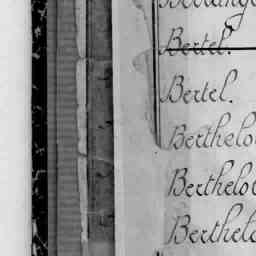 Bertel.
Bertel.
Berthelo
Berthelo
Berthelo